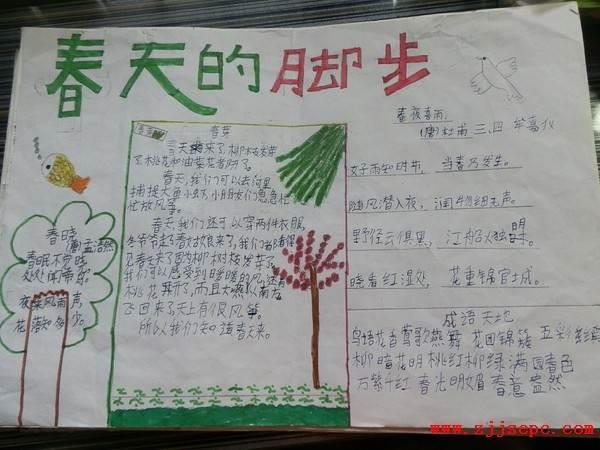 春天的脚步
春夜喜雨
(唐)杜甫 三、四 牟嘉仪
好雨知时节,当春乃发生。
随风潜入夜,润物细无声。
野径云俱黑,江船火独明。
晓看红湿处,花重锦官城。
成语天地
鸟语花香 莺歌燕舞 花团锦簇 五彩缤纷
柳暗花明 桃红柳绿 满园春色
万紫千红 春光明媚 春意盎然
春芽
春天来了,柳树发芽
了桃花和油菜花者开了。
春天,我们可以去河里
捕捉大鱼小动,小朋友们急急忙
忙放风筝。
春天,我们还可以穿两件衣服,
冬爷爷走了春姑娘来了,我们者
见春天来了因为柳树枝发芽了
我们可以感受到暖暖的风,还有
桃花开了,而且大燕从南方
飞回来了,天上有很风筝。
所以我们知道春天来。
春晓
唐 孟浩然
春眠不觉晓
处处闻啼鸟。
夜来风雨声,
花落知多少。
www.zjjscpc.com